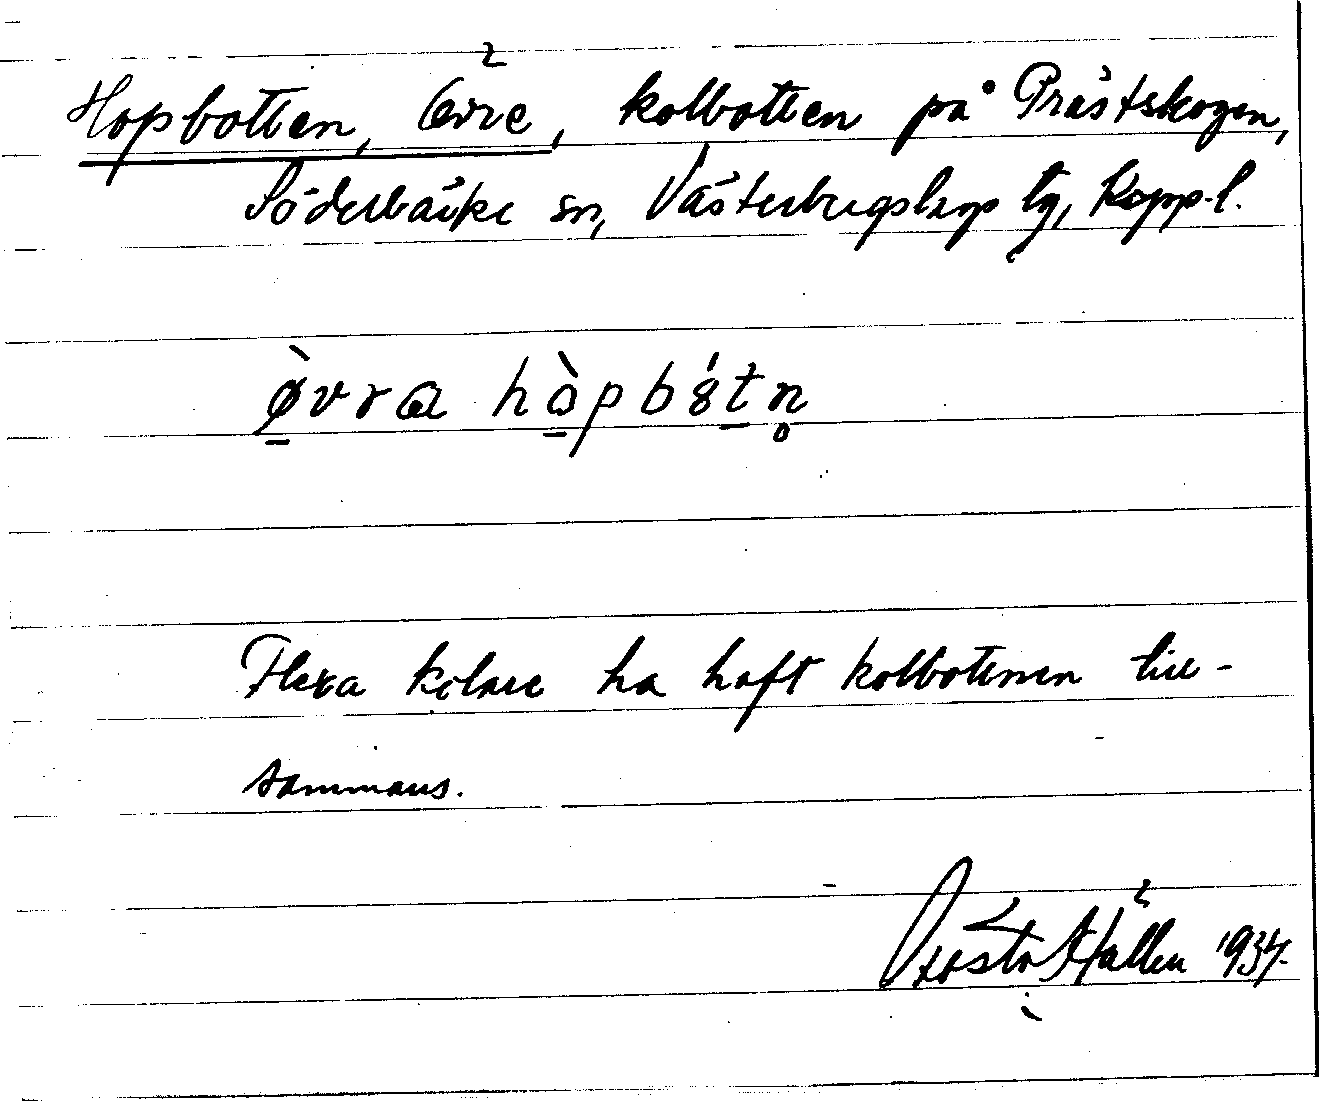 Hopbotten, Övre, kolbotten på Prästskogen,
Söderbärke sn, Västerbergslags tg, Kopp.l.
ø̀vra hòpbótn̥
Flera kolare ha haft kolbottnen till-
sammans.
Gösta Hällen 1934.